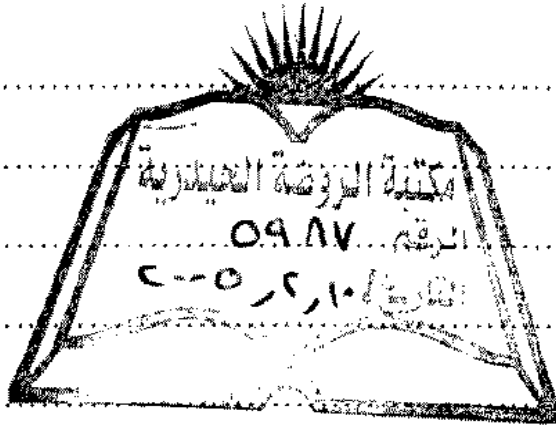 مكتبة الروضة الحيدرية
الرقم ٥٩٨٧
التاريخ ١٠/٢/٢٠٠٥